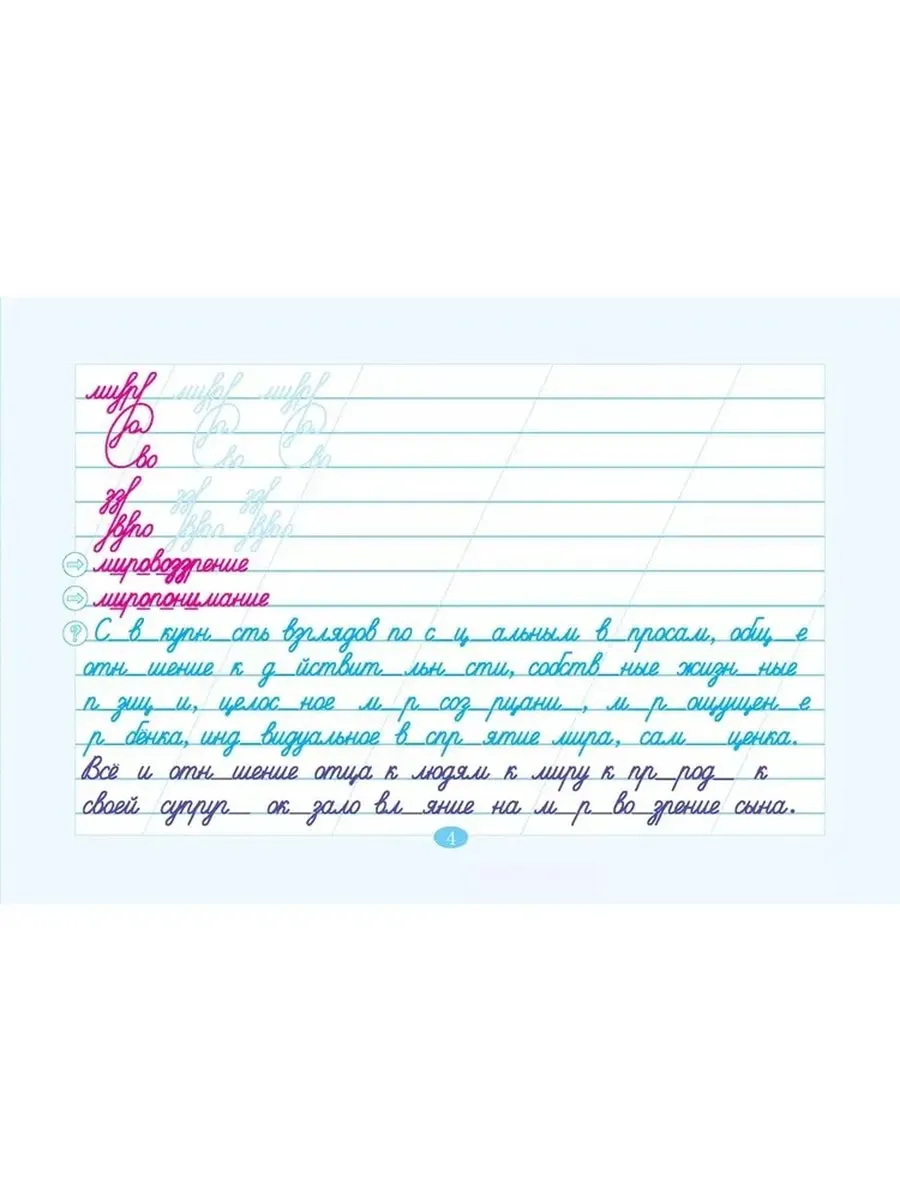 мирр мирр мирр
ра ра ра
во во во
ззр ззр ззр
ввпо ввпо ввпо
мировоззрение
миропонимание
? С_в_купн_сть взглядов по с_ц_альным в_просам, общ_е
отн_шение к д_йствит_льн_сти, собств_ные жизн_ные
п_зиц_и, целос_ное м_р_соз_рцани_, м_р_ощущен_е
р_бёнка, инд_видуальное в_спр_ятие мира, сам__ценка.
Всё и отн_шение отца к людям к миру к пр_род_ к
своей супруг_ ок_зало вл_яние на м_р_во_зрение сына.
4